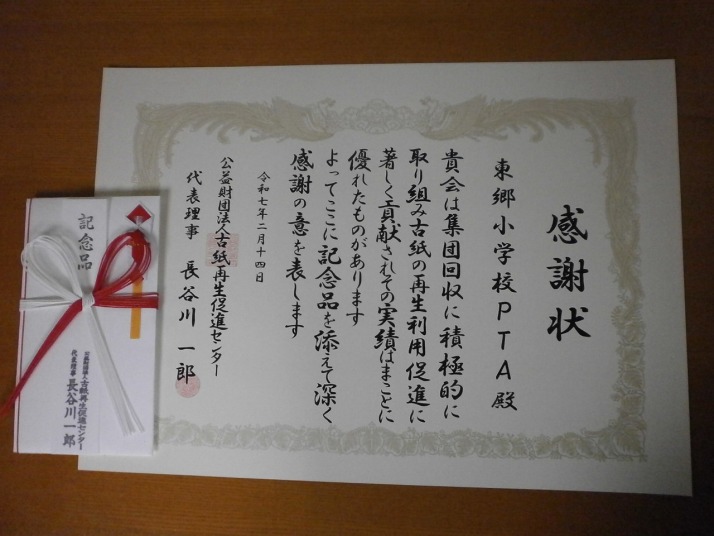 感謝状
東郷小学校PTA殿
貴会は集団回収に積極的に
取り組み古紙の再生利用促進に
著しく貢献されその実績はまことに
優れたものがあります
よってここに記念品を添えて深く
感謝の意を表します
令和七年二月十四日
公益財団法人古紙再生促進センター
代表理事 長谷川一郎
記念品
公益財団法人古紙再生促進センター
代表理事 長谷川一郎